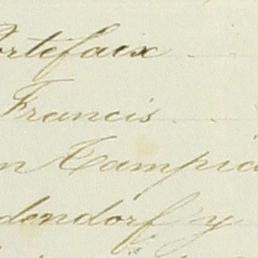 ortefaix
Francis
n Campic
dendorf y